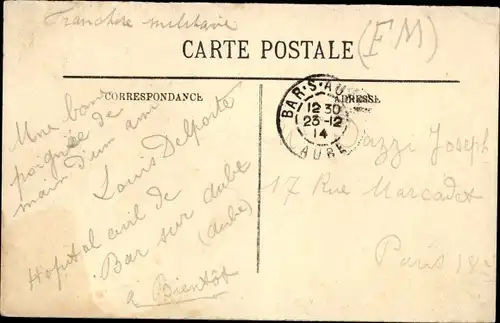 Franchise militaire
(FM)
CARTE POSTALE
CORRESPONDANCE
ADRESSE
BAR-S-AU
12 30
23-12
14
AUBE
Une bonne
poignée de
main d'un ami
Louis Delporte
Hopital civil de
Bar sur aube
(aube)
a Bientôt
Joseph
17 Rue Marcadet
Paris 18